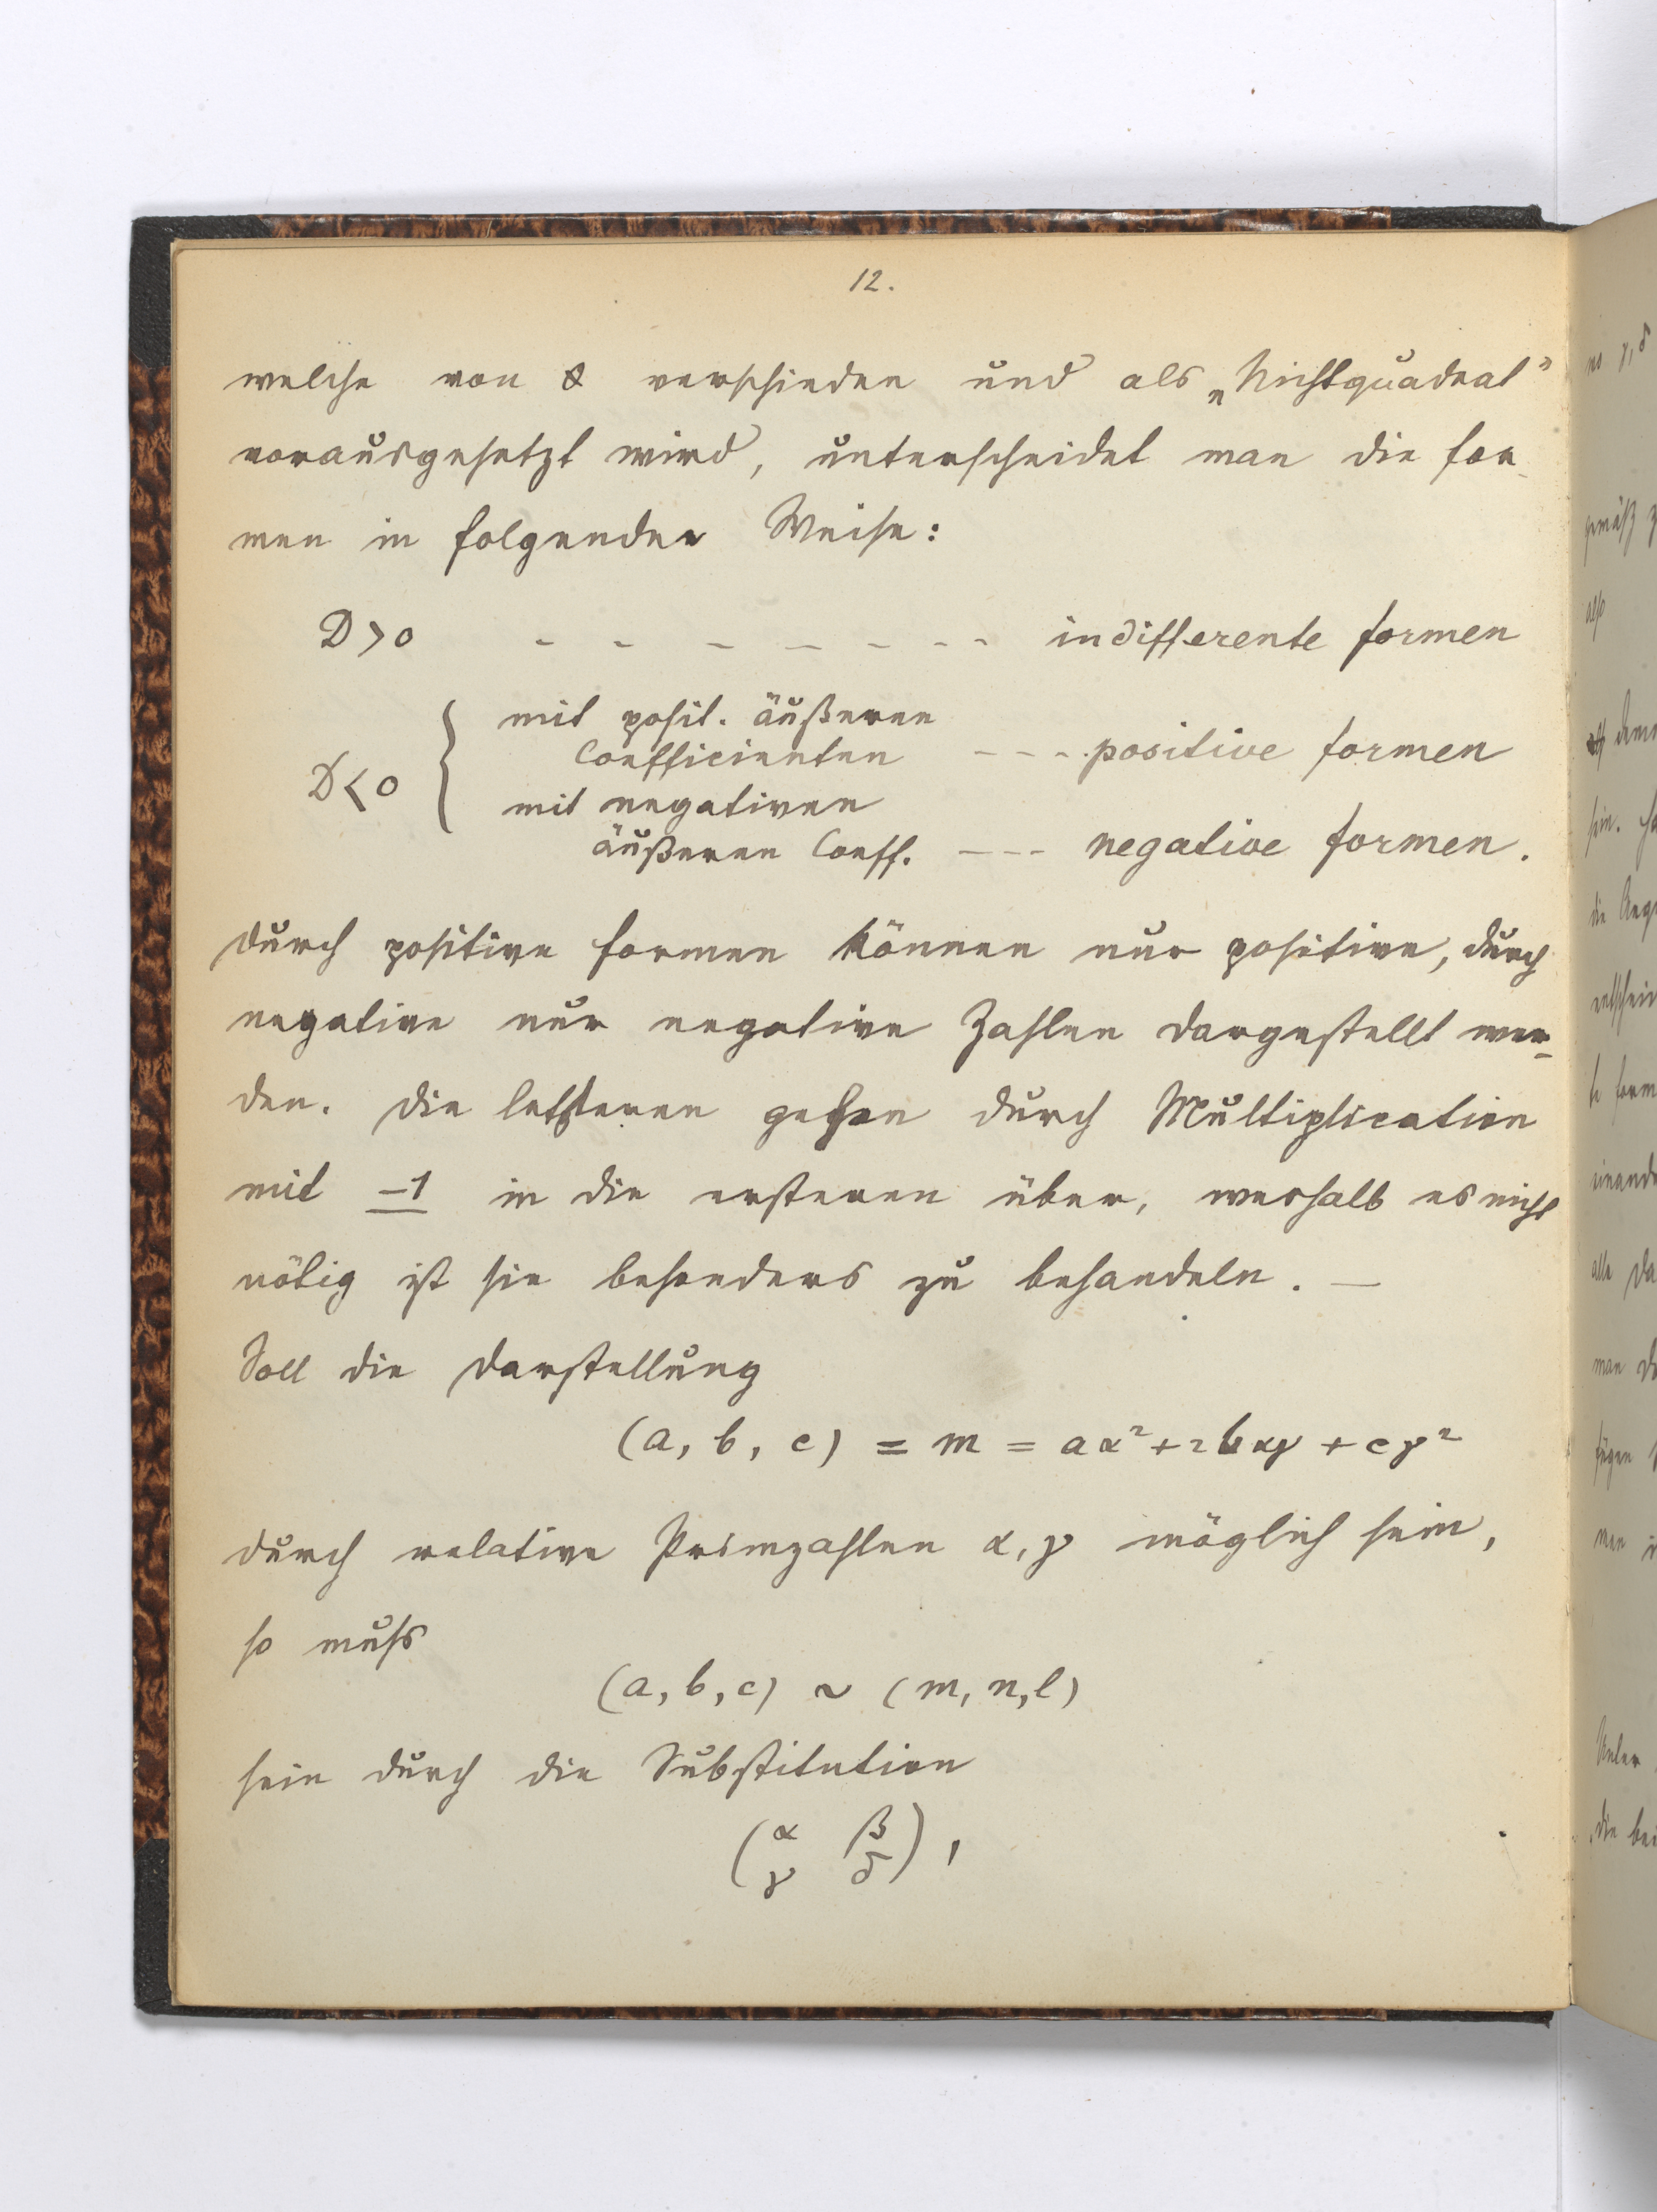 12.
welche von 0 verschieden und als „Nichtquadrat“
vorausgesetzt wird, unterscheidet man die For-
men in folgender Weise:
D>0 - - - - - - - indifferente Formen
mit posit. äußeren
Coefficienten - - - positive Formen
D<0 {
mit negativen
äußeren Coeff. - - - negative Formen.
Durch positive Formen können nur positive, durch
negative nur negative Zahlen dargestellt wer-
den. Die letzteren gehen durch Multiplication
mit −1 in die ersteren über, weshalb es nicht
nötig ist sie besonders zu behandeln. —
Soll die Darstellung
(a, b, c) = m = aα²+2bαγ + cγ²
durch relative Primzahlen α, γ möglich sein,
so muss
(a, b, c) ~ (m, n, l)
sein durch die Substitution
(α β
γ δ),